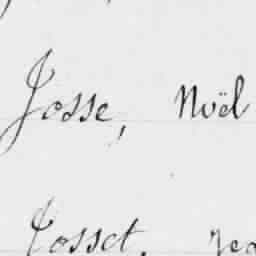 Josse, Noël
Josset,